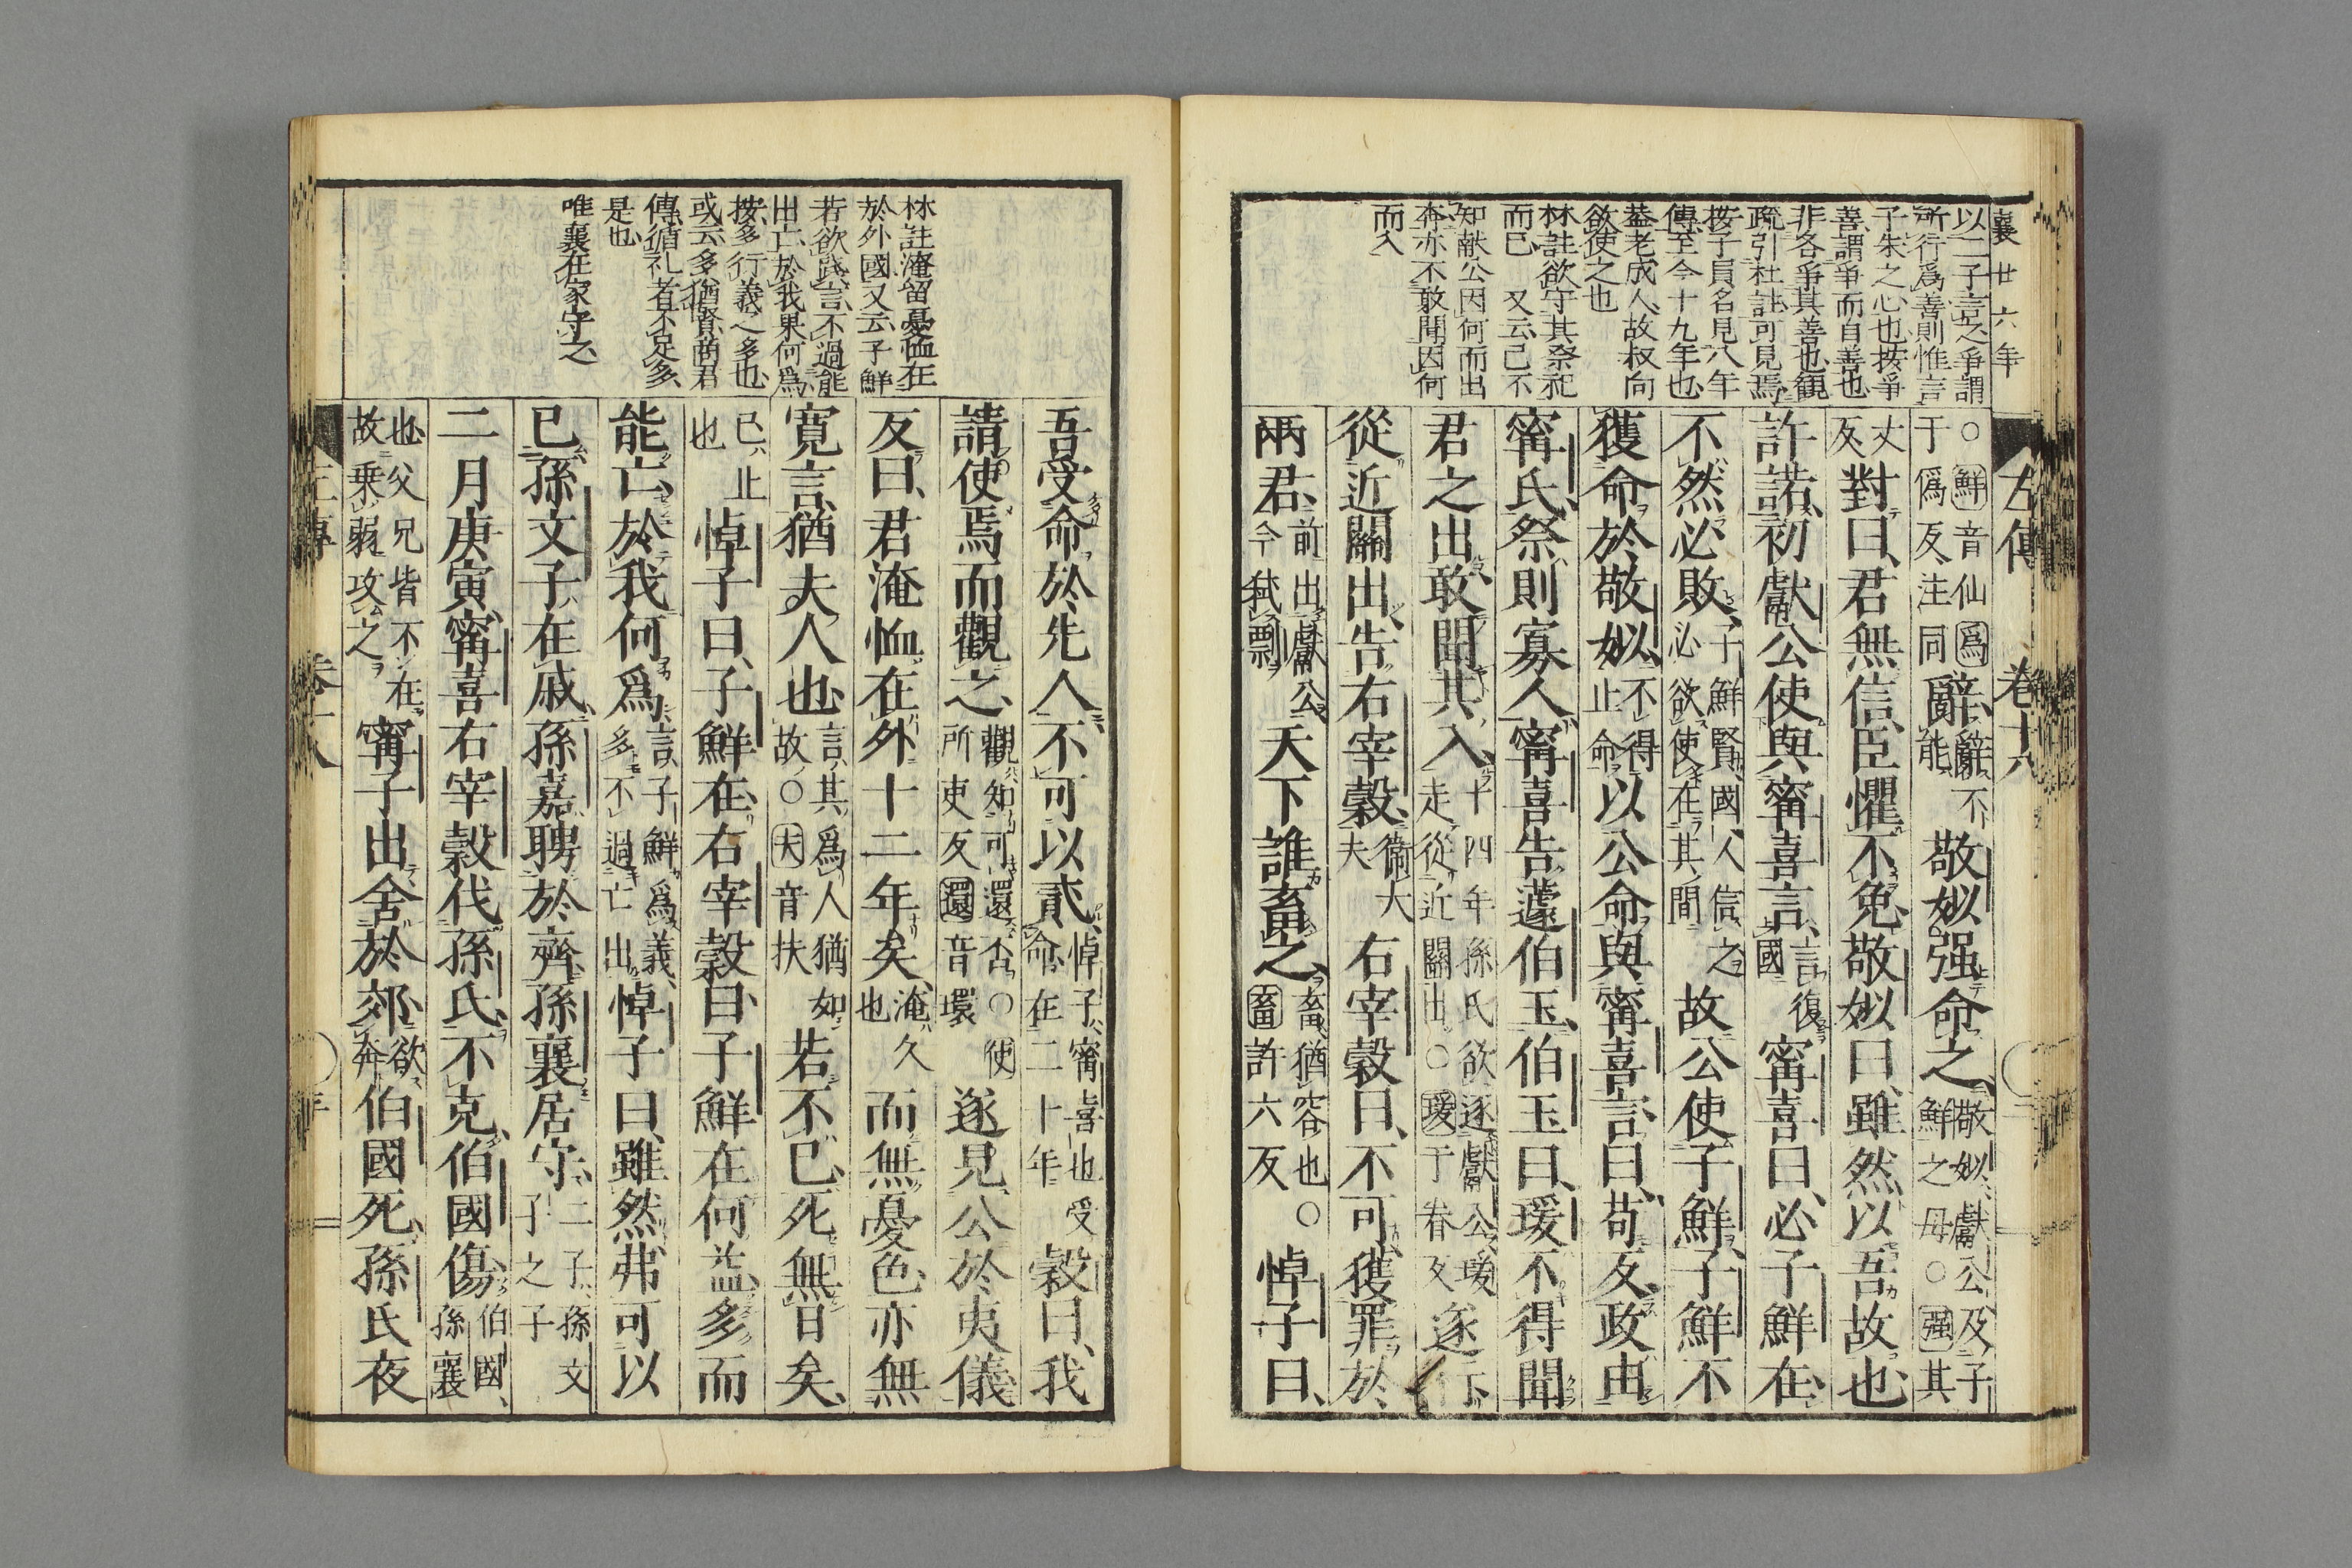 襄廿六年
以二子言之爭謂
所行爲善則惟言
子朱之心也按爭
善謂爭而自善也
非各爭其善也觀
疏引杜註可見焉
按子員名見八年
傳至今十九年也
蓋老成人故叔向
欲使之也
林註欲守其祭祀
而已　又云己不
知献公因何而出
奔亦不敢聞因何
而入
左傳　卷十八
○鮮音仙爲于僞反注同辭辭不能敬姒强命之敬姒獻公及子鮮之母○强其
丈反對曰君無信臣懼不免敬姒曰雖然以吾故也
許諾初獻公使與甯喜言言復國甯喜曰必子鮮在
不然必敗子鮮賢國人信之必欲使在其間故公使子鮮子鮮不
獲命於敬姒不得止命以公命與甯喜言曰苟反政由
甯氏祭則寡人甯喜告蘧伯玉伯玉曰瑗不得聞
君之出敢聞其入十四年孫氏欲逐獻公瑗走從近關出○瑗于眷反遂行
從近關出告右宰穀衞大夫右宰穀曰不可獲罪於
兩君前出獻公今弒剽天下誰畜之畜猶容也○畜許六反悼子曰
林註淹留憂恤在
於外國又云子鮮
若欲踐言不過能
出亡於我果何爲
按多行義之多也
或云多猶賢商君
傳循礼者不足多
是也
唯襄在家守之
吾受命於先人不可以貳悼子甯喜也受命在二十年穀曰我
請使焉而觀之觀知可還否○使所吏反還音環遂見公於夷儀
反曰君淹恤在外十二年矣淹久也而無憂色亦無
寛言猶夫人也言其爲人猶如故○夫音扶若不已死無日矣
已止也悼子曰子鮮在右宰穀曰子鮮在何益多而
能亡於我何爲言子鮮爲義多不過亡出悼子曰雖然弗可以
已孫文子在戚孫嘉聘於齊孫襄居守二子孫文子之子
二月庚寅甯喜右宰穀伐孫氏不克伯國傷伯國孫襄
也父兄皆不在故乗弱攻之甯子出舍於郊欲奔伯國死孫氏夜